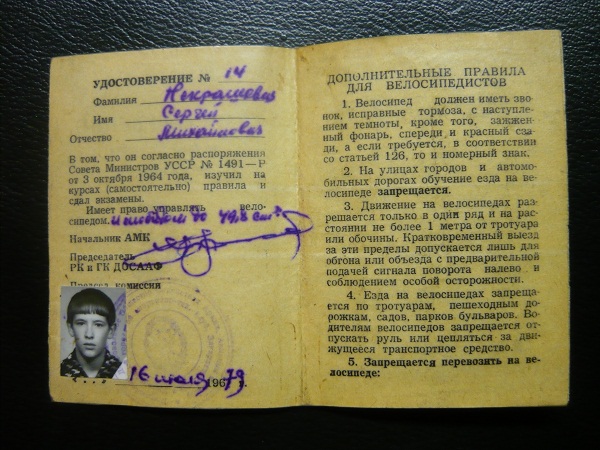 УДОСТОВЕРЕНИЕ № 14
Фамилия Некрашевич
Имя Сергей
Отчество Михайлович
В том, что он согласно распоряжения
Совета Министров УССР № 1491—Р
от 3 октября 1964 года, изучил на
курсах (самостоятельно) правила и
сдал экзамены.
Имеет право управлять вело-
сипедом. и мопедом до 49,8 см³
Начальник АМК
Председатель
РК и ГК ДОСААФ
Председ. комиссии
16 июля 1967 79 г.
ДОПОЛНИТЕЛЬНЫЕ ПРАВИЛА
ДЛЯ ВЕЛОСИПЕДИСТОВ
1. Велосипед должен иметь зво-
нок, исправные тормоза, с наступле-
нием темноты, кроме того, зажжен-
ный фонарь, спереди и красный сза-
ди, а если требуется, в соответствии
со статьей 126, то и номерный знак.
2. На улицах городов и автомо-
бильных дорогах обучение езда на ве-
лосипеде запрещается.
3. Движение на велосипедах раз-
решается только в один ряд и на рас-
стоянии не более 1 метра от тротуара
или обочины. Кратковременный выезд
за эти пределы допускается лишь для
обгона или объезда с предварительной
подачей сигнала поворота налево и
соблюдением особой осторожности.
4. Езда на велосипедах запреща-
ется по тротуарам, пешеходным до-
рожкам, садов, парков бульваров. Во-
дителям велосипедов запрещается от-
пускать руль или цепляться за дви-
жущееся транспортное средство.
5. Запрещается перевозить на ве-
лосипеде: